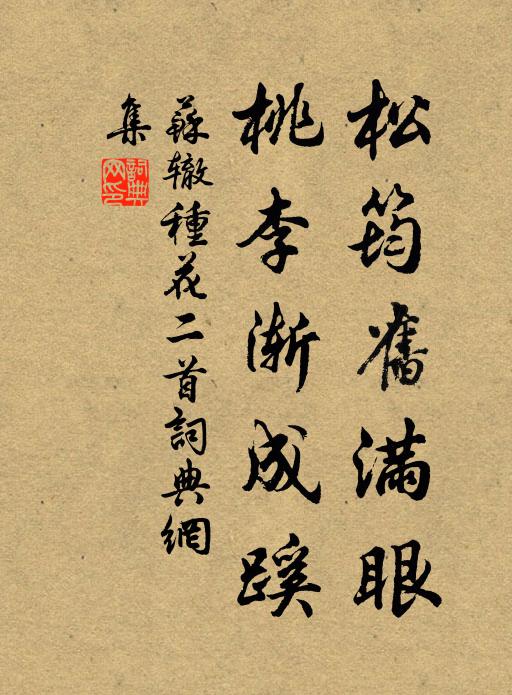 松筠舊滿眼
桃李漸成蹊
蘇轍種花二首詞典網
集
詞典
网印